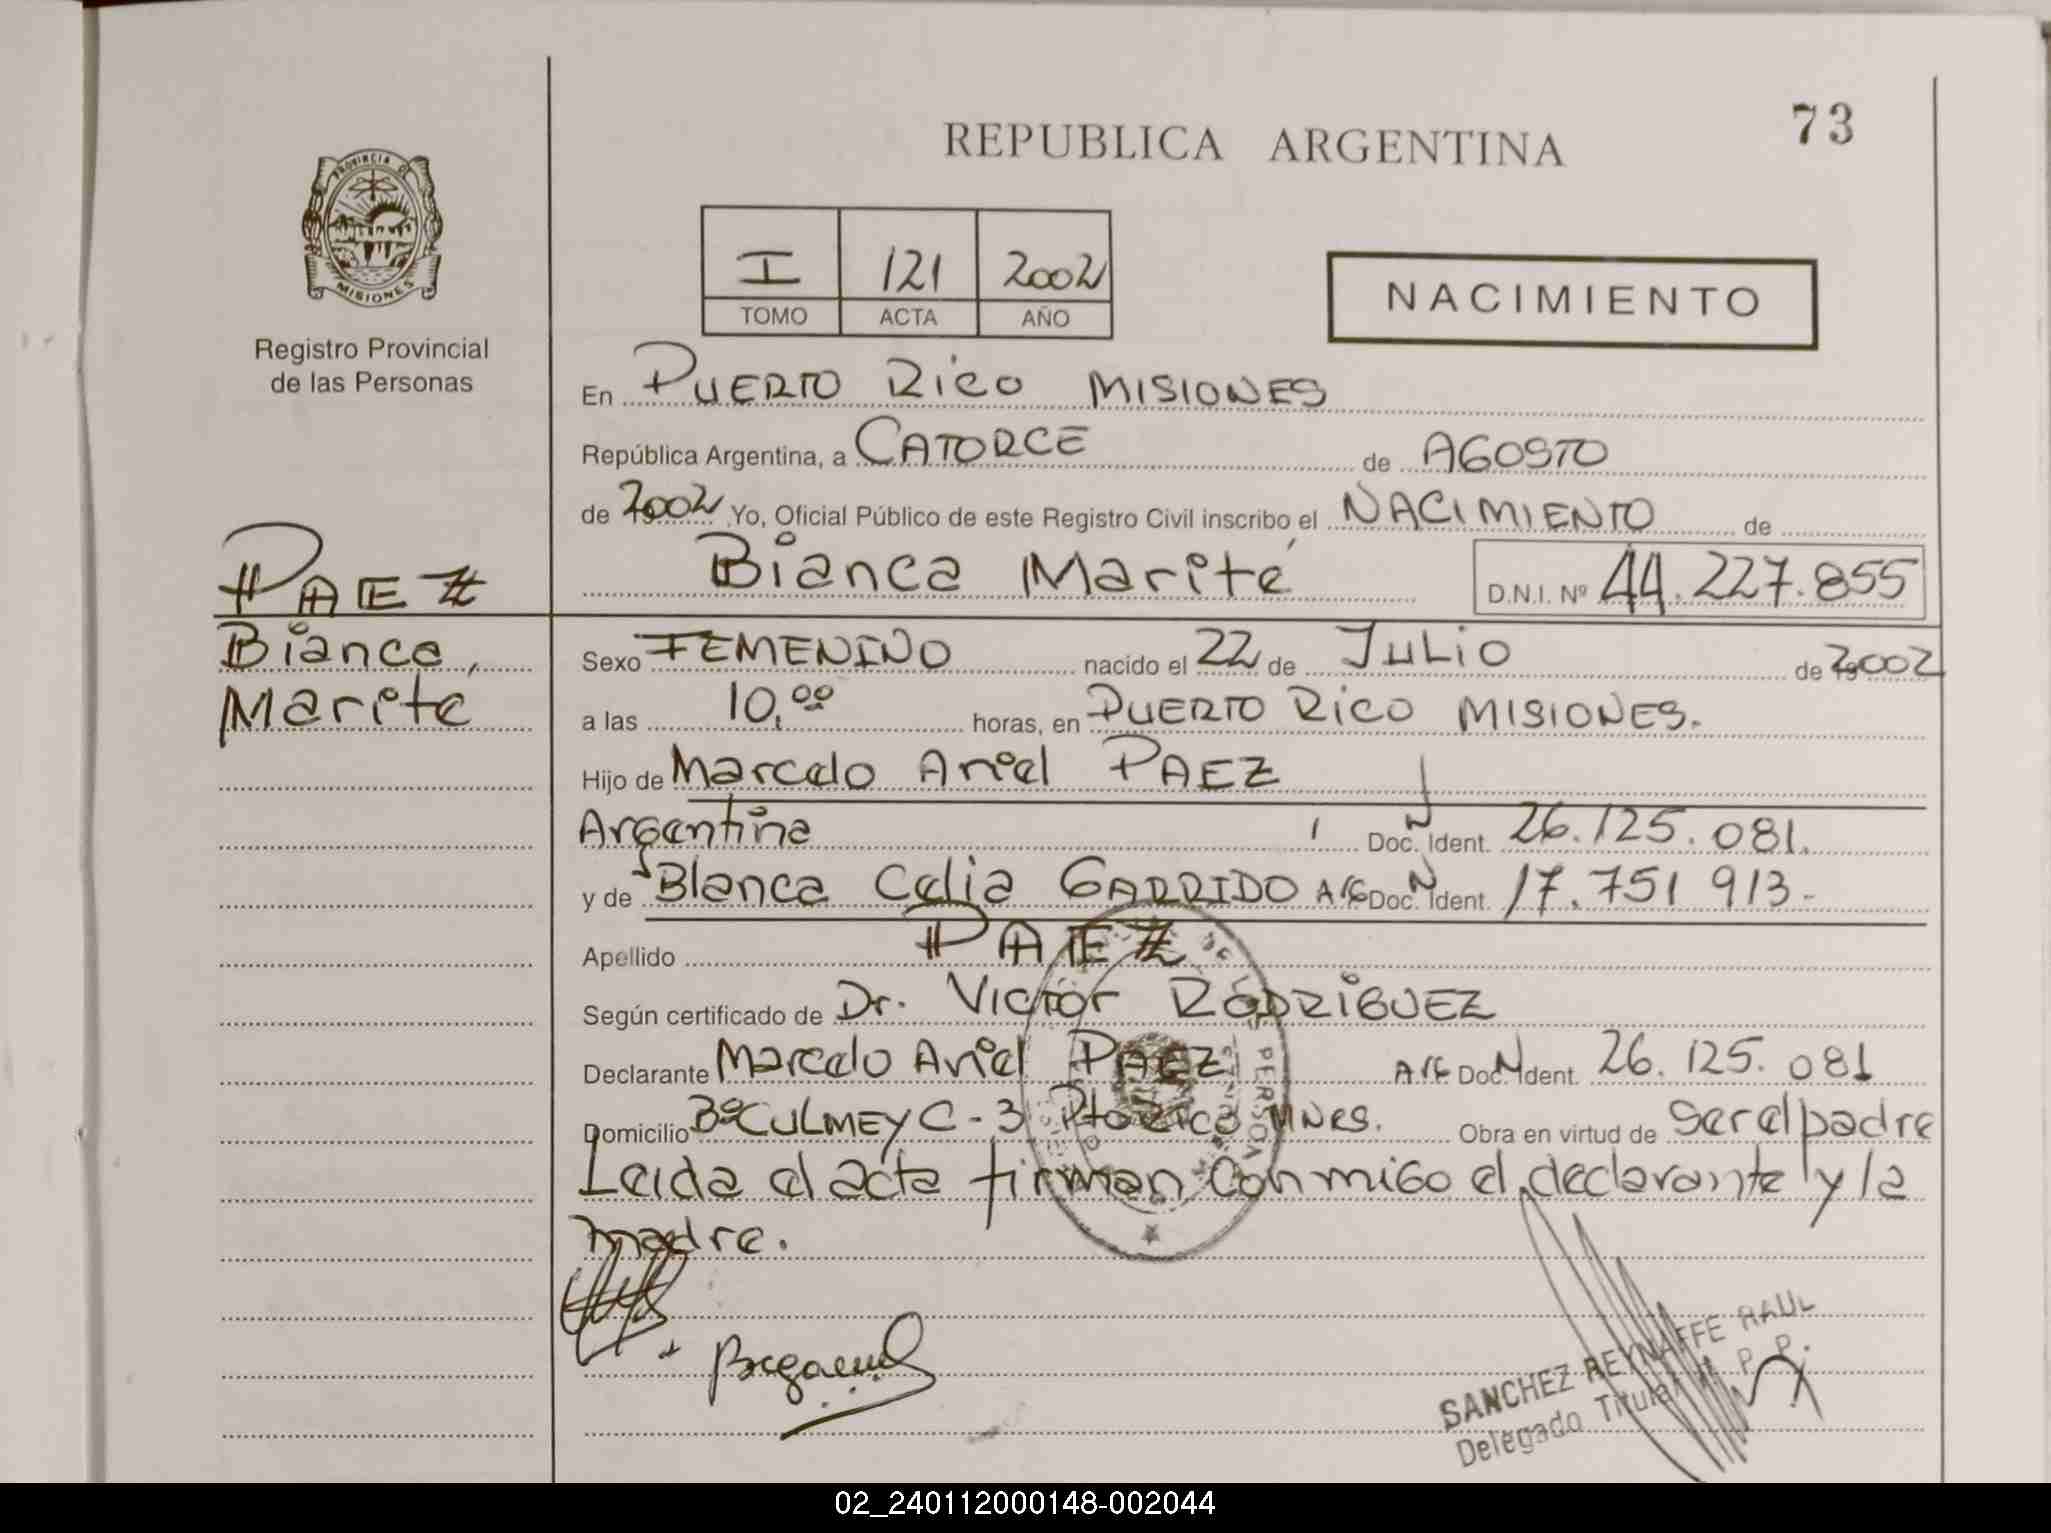 73
REPUBLICA ARGENTINA
PROVINCIA D
MISIONES
Registro Provincial
de las Personas
I 121 2002
TOMO ACTA AÑO
NACIMIENTO
En PUERTO RICO MISIONES
República Argentina, a CATORCE de AGOSTO
de 2002 Yo, Oficial Público de este Registro Civil inscribo el NACIMIENTO de
Bianca Marité D.N.I. Nº 44.227.855
PAEZ
Bianca,
Marite
Sexo FEMENINO nacido el 22 de JULIO de 2002
a las 10,00 horas, en PUERTO RICO MISIONES.
Hijo de Marcelo Ariel PAEZ
Argentina Doc. Ident. 26.125.081.
y de Blanca Celia GARRIDO ARG Doc. N Ident. 17.751 913-
Apellido PAEZ
Según certificado de Dr. VICTOR RODRIGUEZ
Declarante Marcelo Ariel PAEZ ARG Doc. N Ident. 26.125.081
Domicilio Bº CULMEY C-3 Pto Rico MNES. Obra en virtud de ser el padre
Leida el acta firman conmigo el declarante y la
madre.
SANCHEZ REYNAFFE RAUL
Delegado Titular R. P. P.
02_240112000148-002044